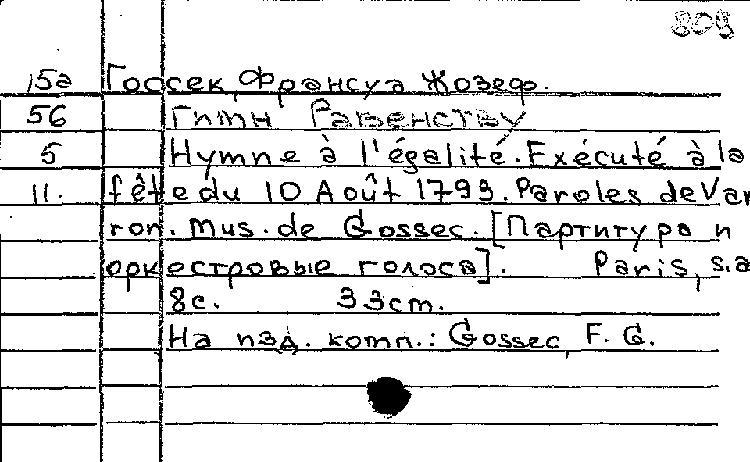 808
15а Госсек, Франсуа Жозеф.
56 Гимн Равенству
5 Hymne à l'égalité. Exécuté à la
11. fête du 10 Août 1793. Paroles de Var
ron. Mus. de Gossec. [Партитура и
оркестровые голоса]. Paris, s.a
8с. 33cm.
На изд. комп.: Gossec, F. G.